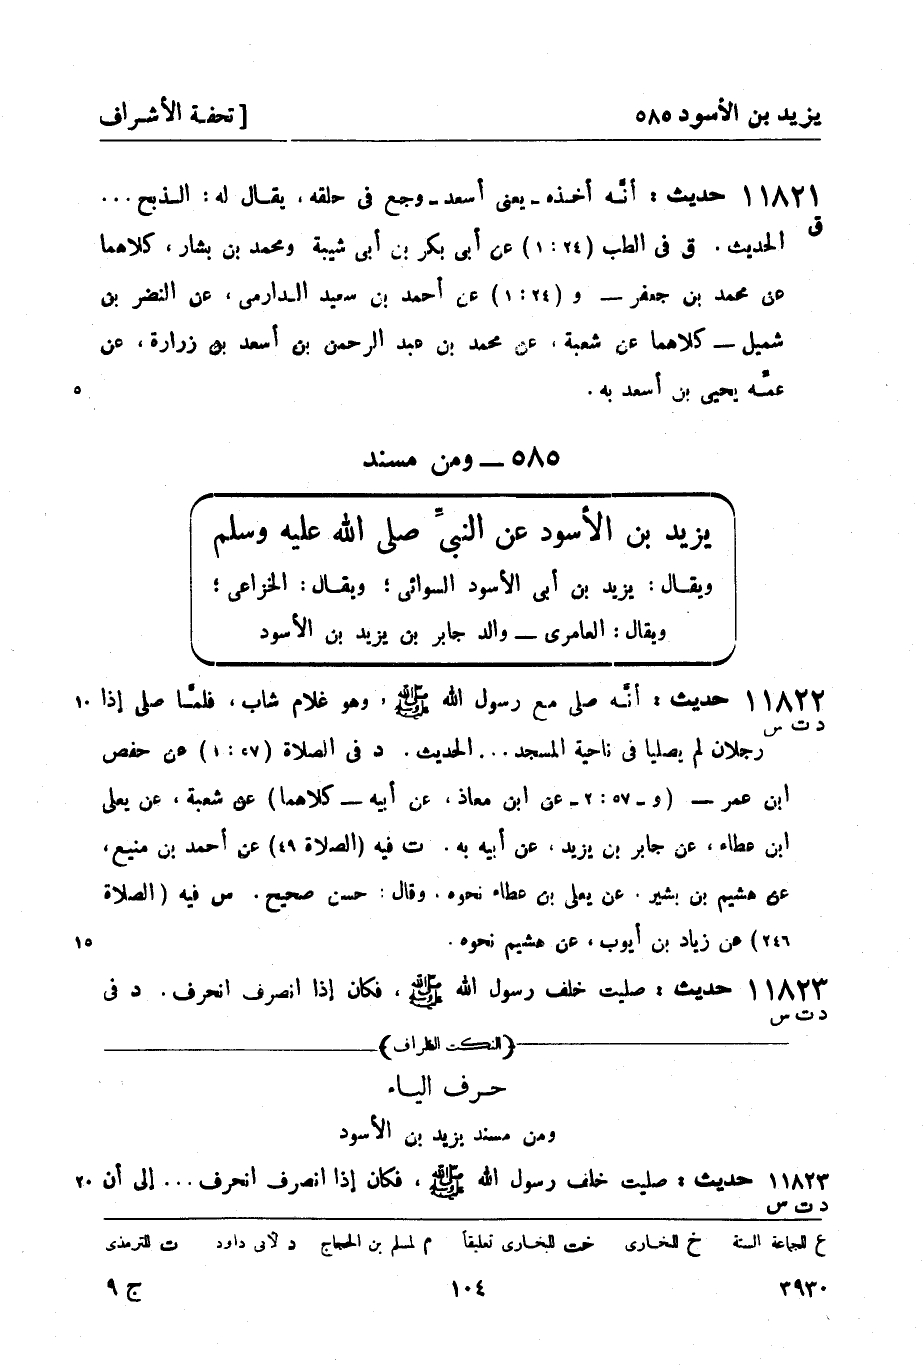 يزيد بن الأسود ٥٨٥
[ تحفة الأشراف
١١٨٢١ حديث : أنَّه أخذه ـ يعنى أسعد ـ وجع فى حلقه ، يقال له : الذبح ...
ق
الحديث . ق فى الطب (٢٤ : ١) عن أبى بكر بن أبى شيبة ومحمد بن بشار ، كلاهما
عن محمد بن جعفر — و (٢٤ : ١) عن أحمد بن سعيد الدارمى ، عن النضر بن
شميل — كلاهما عن شعبة ، عن محمد بن عبد الرحمن بن أسعد بن زرارة ، عن
عمَّه يحيى بن أسعد به .
٥
٥٨٥ — ومن مسند
يزيد بن الأسود عن النبىِّ صلى الله عليه وسلم
ويقال : يزيد بن أبى الأسود السوائى ؛ ويقال : الخزاعى ؛
ويقال : العامرى — والد جابر بن يزيد بن الأسود
١١٨٢٢ حديث : أنَّه صلى مع رسول الله ﷺ ، وهو غلام شاب ، فلمَّا صلى إذا
١٠
د ت س
رجلان لم يصليا فى ناحية المسجد ... الحديث . د فى الصلاة (٥٧ : ١) عن حفص
ابن عمر — (و ـ ٥٧ : ٢ ـ عن ابن معاذ ، عن أبيه — كلاهما) عن شعبة ، عن يعلى
ابن عطاء ، عن جابر بن يزيد ، عن أبيه به . ت فيه (الصلاة ٤٩) عن أحمد بن منيع ،
عن هشيم بن بشير . عن يعلى بن عطاء نحوه . وقال : حسن صحيح . س فيه (الصلاة
٢٤٦) عن زياد بن أيوب ، عن هشيم نحوه .
١٥
١١٨٢٣ حديث : صليت خلف رسول الله ﷺ ، فكان إذا انصرف انحرف . د فى
د ت س
(النكت الظراف)
حرف الياء
ومن مسند يزيد بن الأسود
١١٨٢٣ حديث : صليت خلف رسول الله ﷺ ، فكان إذا انصرف انحرف ... إلى أن
٢٠
د ت س
ع للجاعة الستة خ للبخارى خت للبخارى تعليقاً م لمسلم بن الحجاج د لأبى داود ت للترمذى
٣٩٣٠
١٠٤
ج ٩